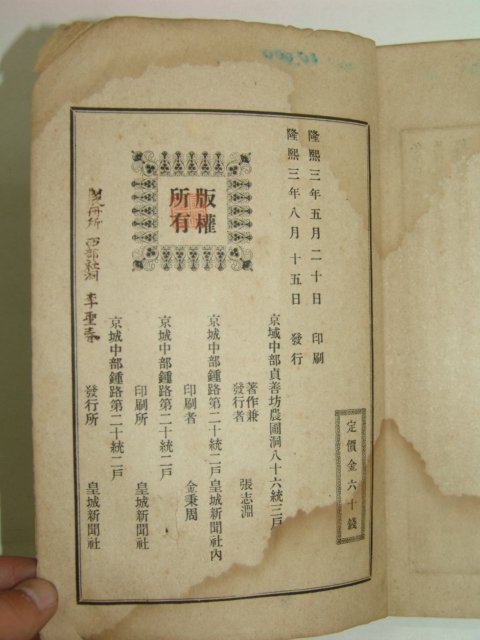 隆熙三年五月二十日 印刷
隆熙三年八月十五日 發行
定價金六十錢
版權
所有
京城中部貞善坊農圃洞八十六統三戶
著作兼
發行者 張志淵
京城中部鍾路第二十統二戶皇城新聞社內
印刷者 金秉周
京城中部鍾路第二十統二戶
印刷所 皇城新聞社
京城中部鍾路第二十統二戶
發行所 皇城新聞社
李聖泰